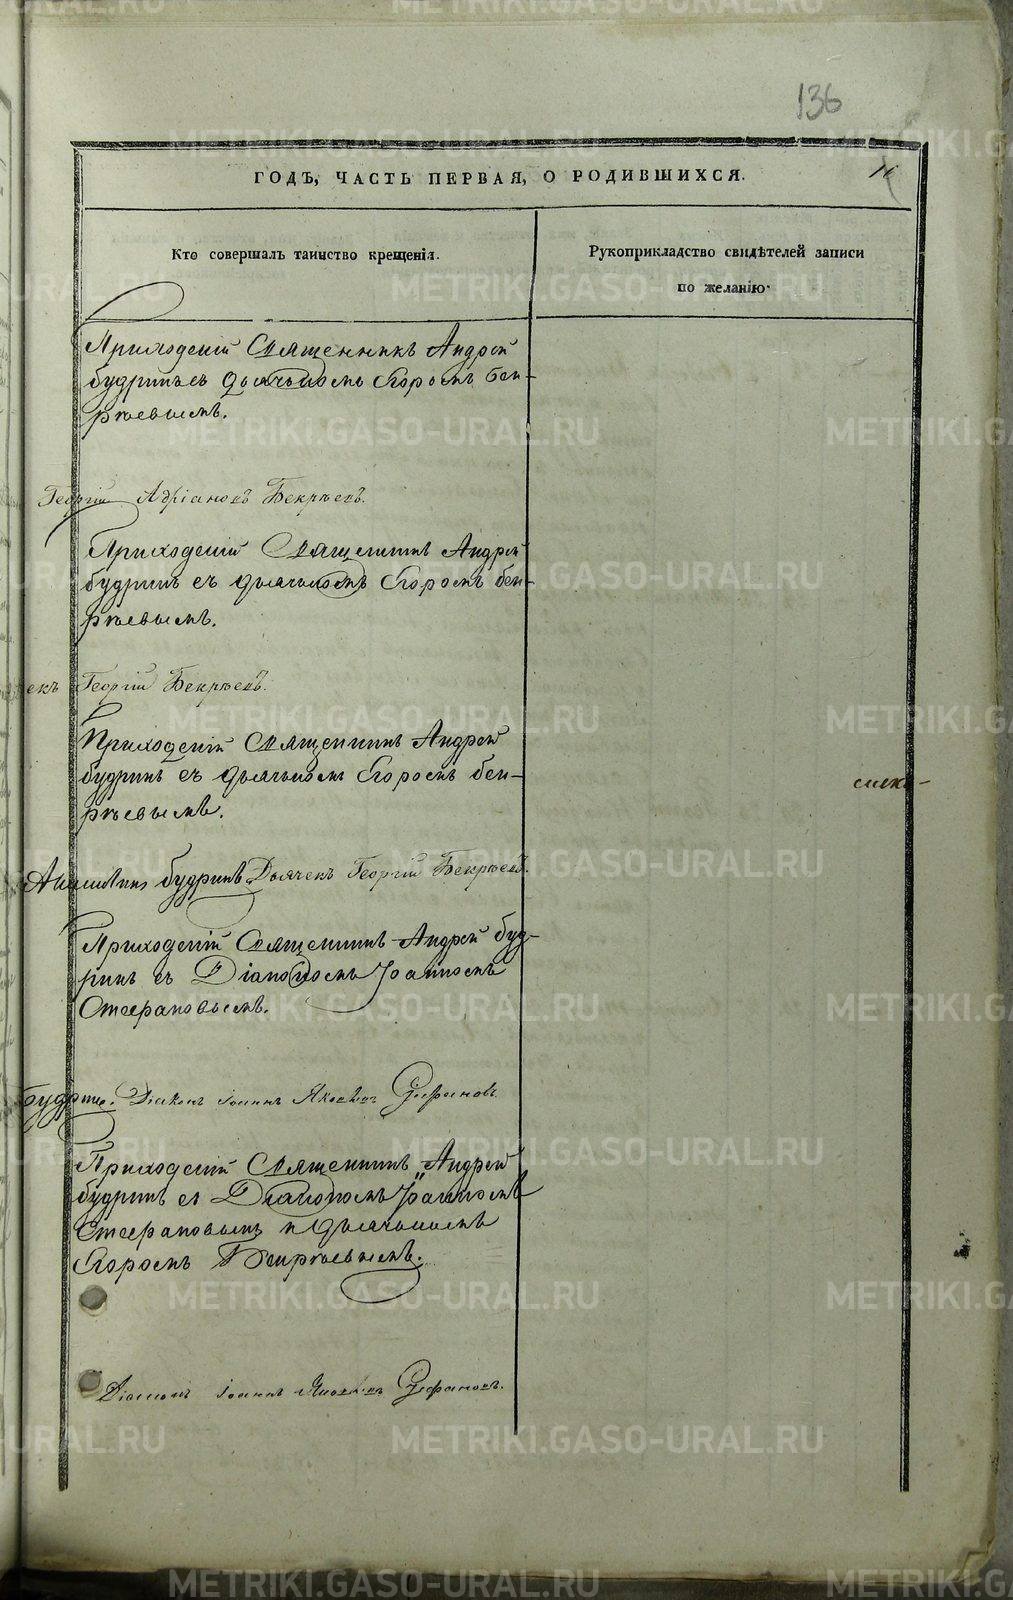 136
ГОДЪ, ЧАСТЬ ПЕРВАЯ, О РОДИВШИХСЯ.
Кто совершалъ таинство крещенія.
Рукоприкладство свидѣтелей записи
по желанію.
Приходскій Священникъ Андрей
будринъ съ дьячькомъ Егоромъ бек-
рѣевымъ.
Георгій Адріановъ Бекрѣевъ.
Приходскій Священникъ Андрей
будринъ съ дьячькомъ Егоромъ бек-
рѣевымъ.
Георгій Бекрѣевъ.
Приходскій Священникъ Андрей
будринъ съ дьячькомъ Егоромъ бек-
рѣевымъ.
будринъ Дьячекъ Георгій Бекрѣевъ.
Приходскій Священникъ Андрей буд-
ринъ съ Діакономъ Іоанномъ
Стефановымъ.
будринъ. Діаконъ Іоаннъ Яковлевъ Стефановъ.
Приходскій Священникъ Андрей
будринъ съ Діакономъ Іоанномъ
Стефановымъ и дьячькомъ
Егоромъ Бекрѣевымъ.
Діаконъ Іоаннъ Яковлевъ Стефановъ.
METRIKI.GASO-URAL.RU